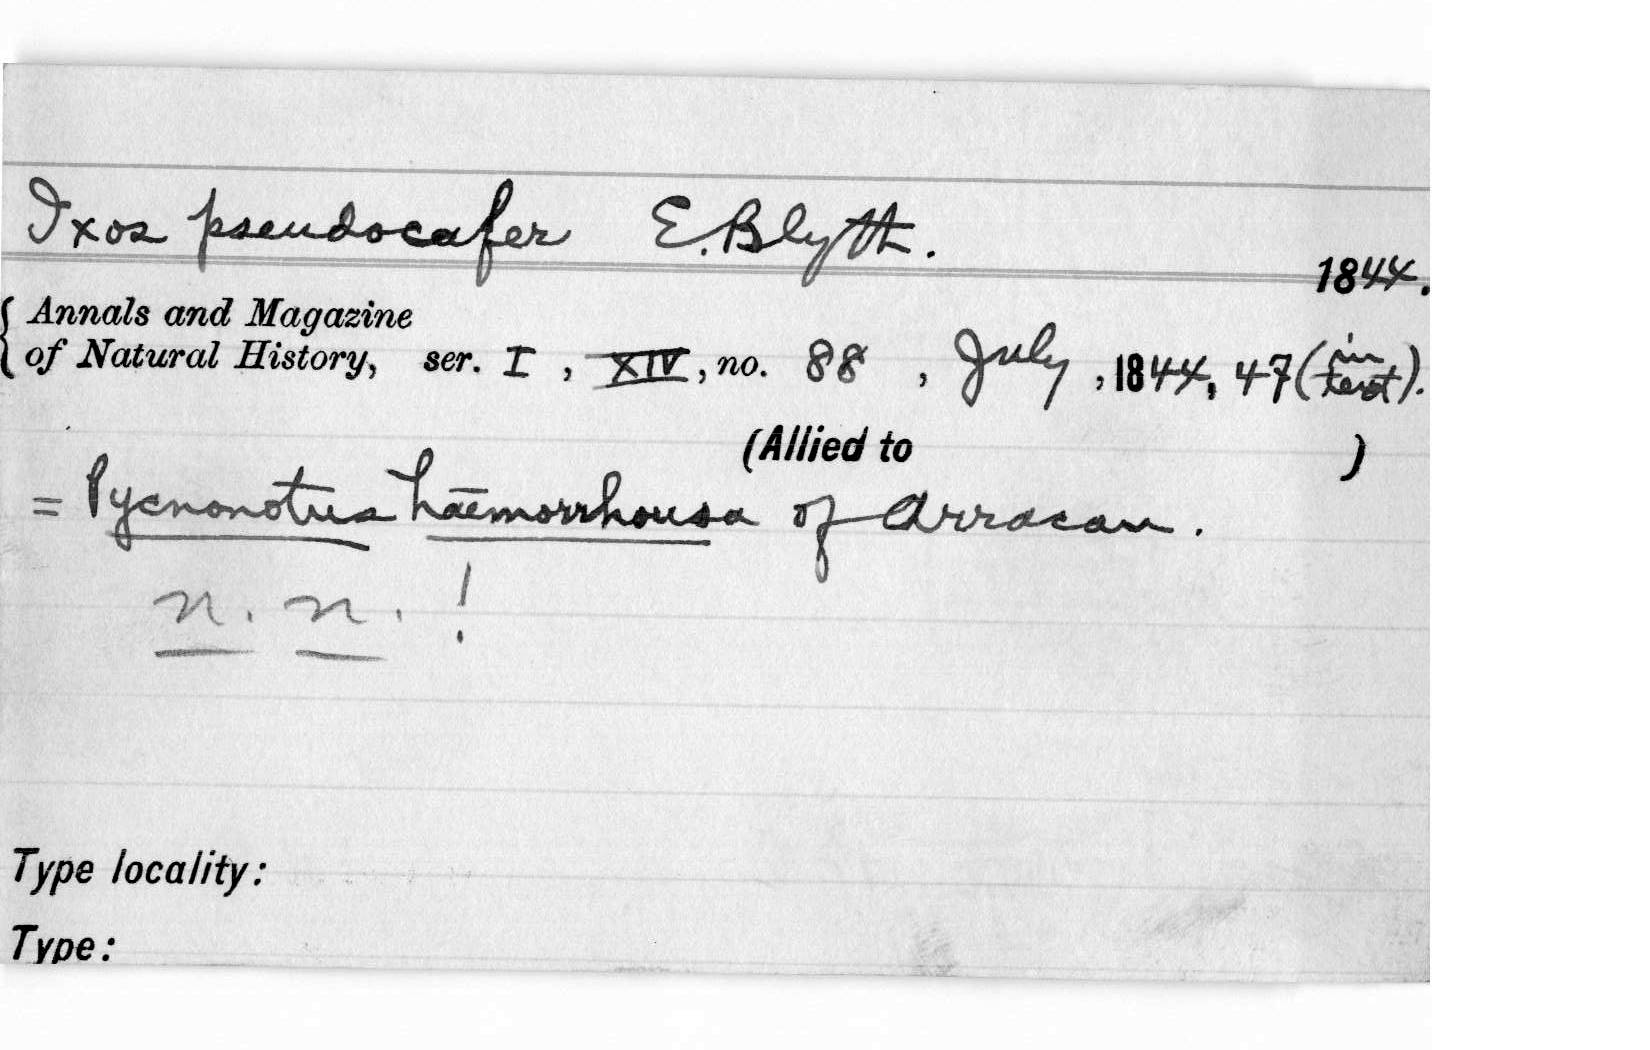 Ixos pseudocafer E. Blyth.
1844.
{ Annals and Magazine
of Natural History, ser. I, XIV, no. 88, July, 1844, 47 (in text).
(Allied to )
= Pycnonotus haemorrhousa of Arracan.
n. n. !
Type locality:
Type: